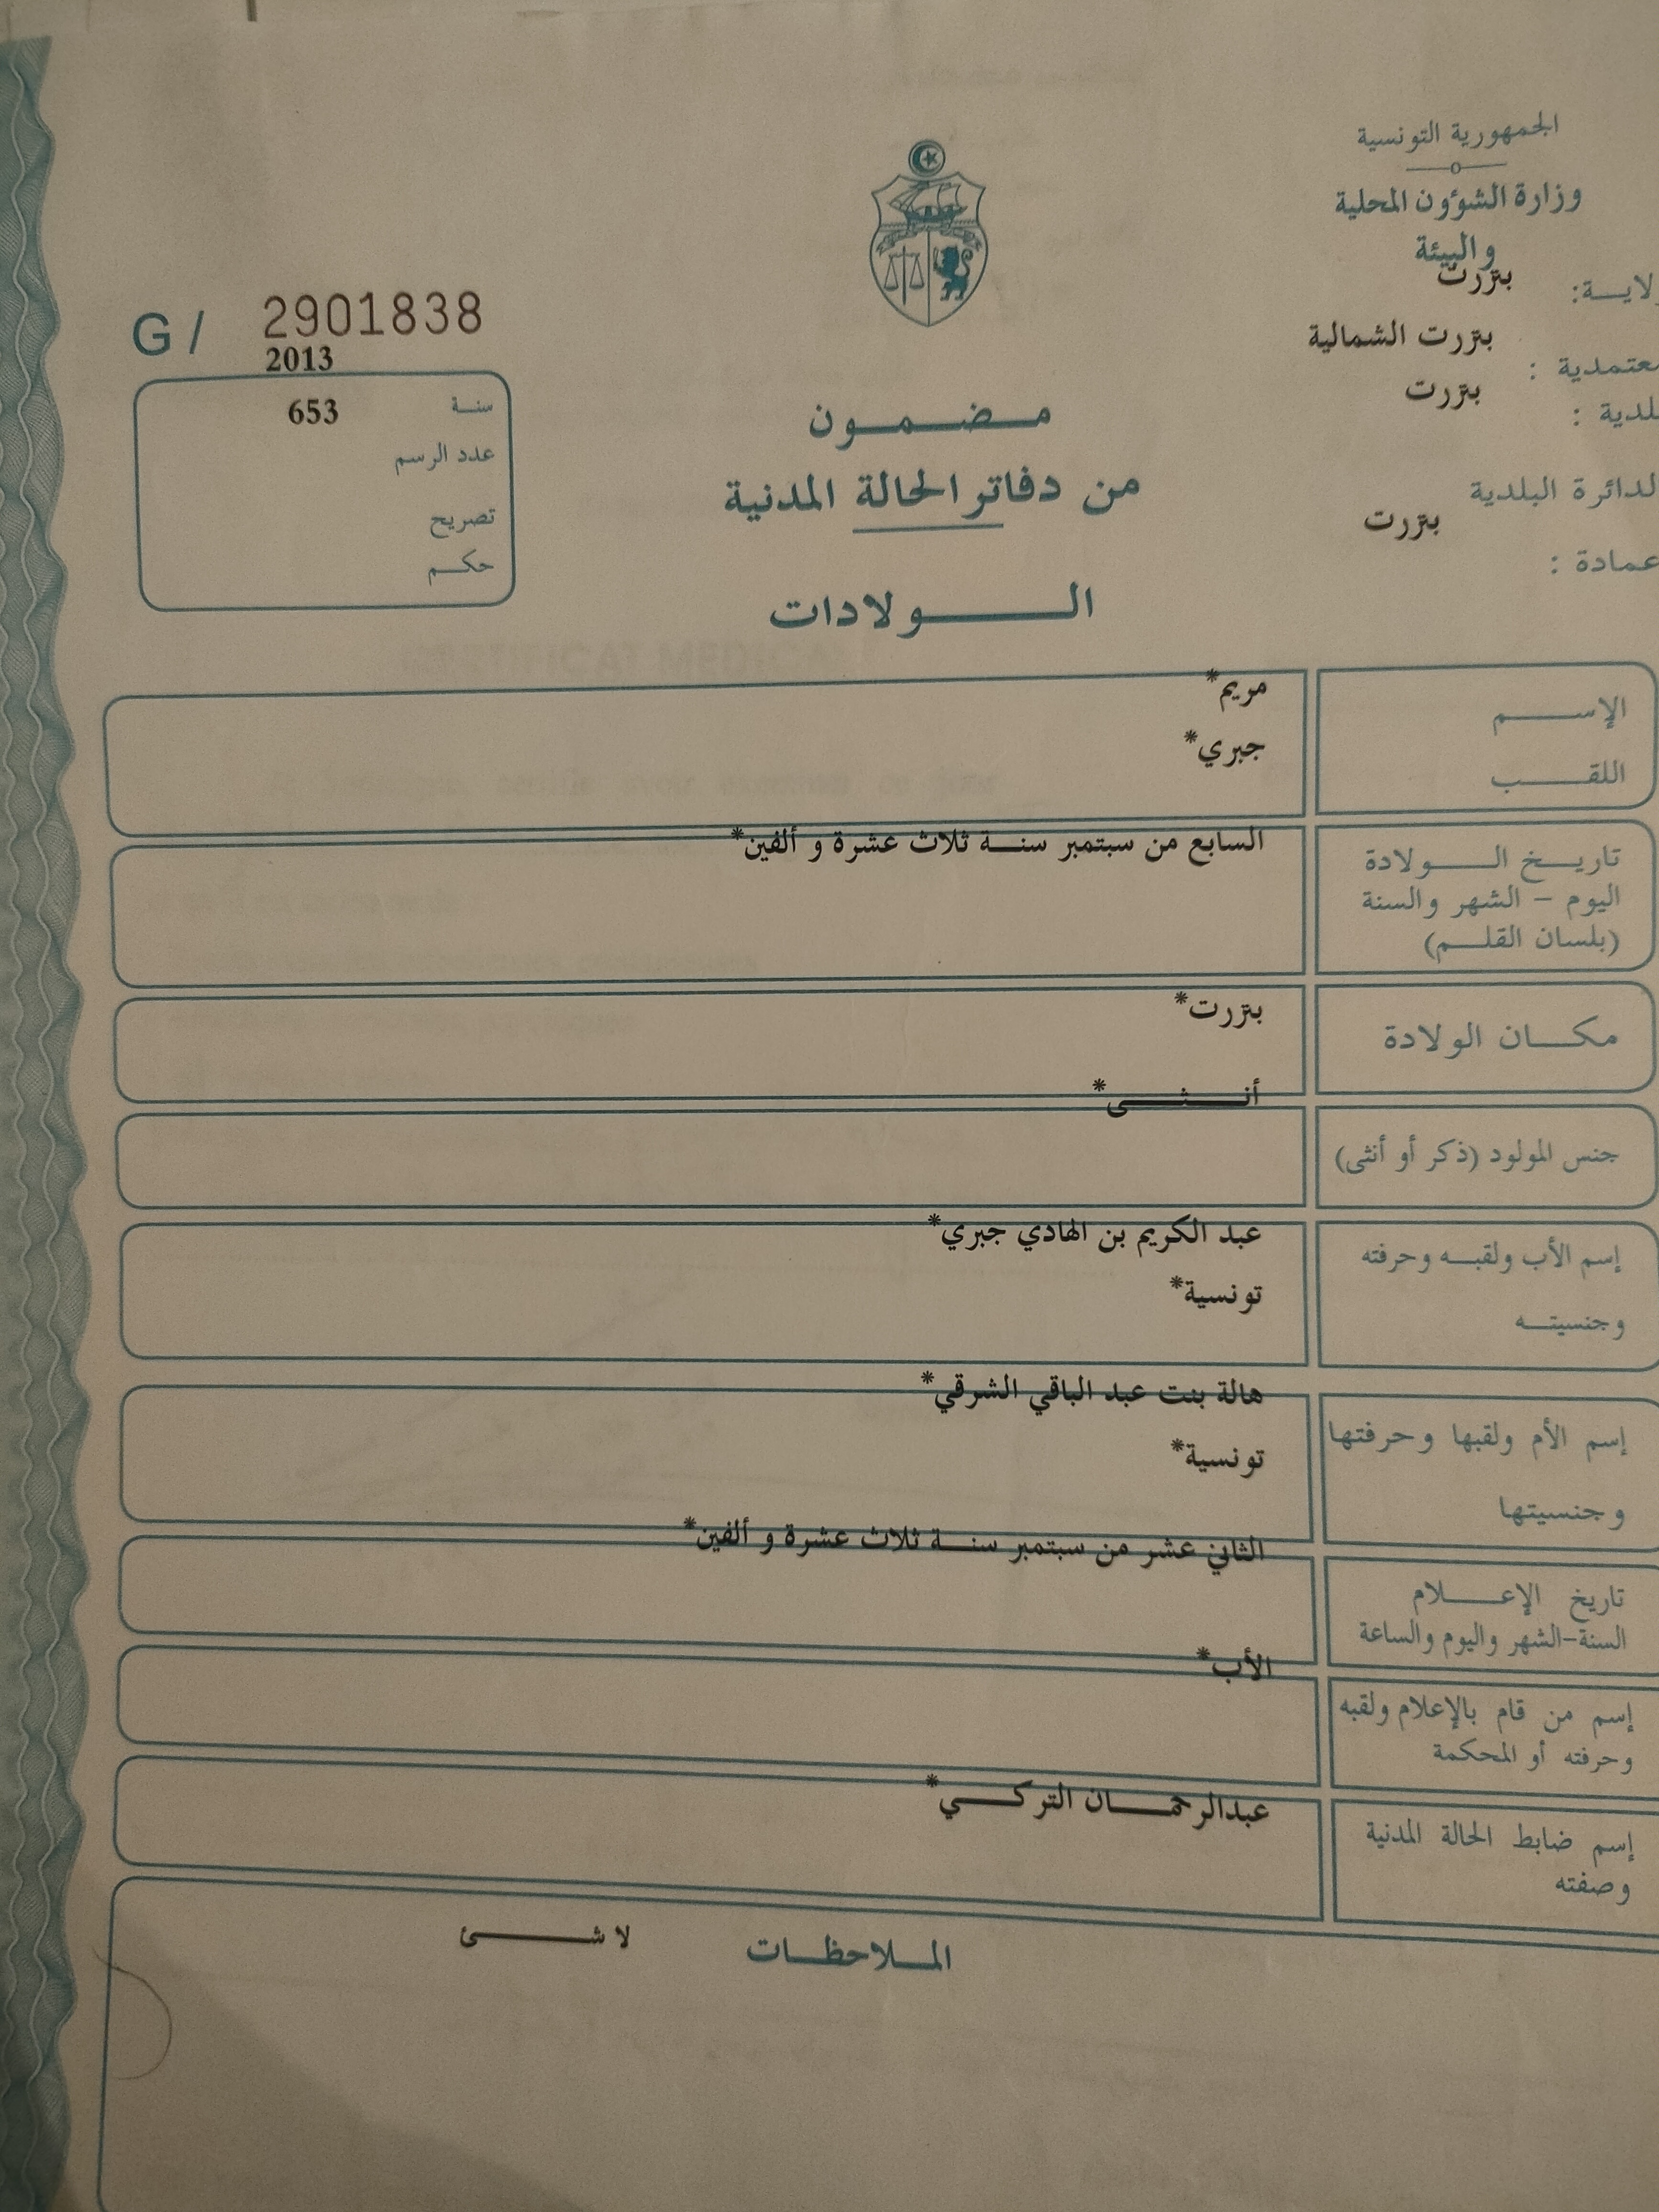 الجمهورية التونسية
وزارة الشؤون المحلية
والبيئة
ولايــة: بنزرت
معتمدية : بنزرت الشمالية
بلدية : بنزرت
الدائرة البلدية
بنزرت
عمادة :
G/ 2901838
2013
سنة 653
عدد الرسم
تصريح
حكم
مضمون
من دفاتر الحالة المدنية
الولادات
الإسم مريم*
اللقب جبري*
تاريخ الولادة السابع من سبتمبر سنة ثلاث عشرة و ألفين*
اليوم - الشهر والسنة
(بلسان القلم)
مكان الولادة بنزرت*
أنثى*
جنس المولود (ذكر أو أنثى)
إسم الأب ولقبه وحرفته عبد الكريم بن الهادي جبري*
وجنسيته تونسية*
إسم الأم ولقبها وحرفتها هالة بنت عبد الباقي الشرقي*
وجنسيتها تونسية*
الثاني عشر من سبتمبر سنة ثلاث عشرة و ألفين*
تاريخ الإعلام
السنة-الشهر واليوم والساعة
الأب*
إسم من قام بالإعلام ولقبه
وحرفته أو المحكمة
عبدالرحمان التركي*
إسم ضابط الحالة المدنية
وصفته
الملاحظات لا شئ